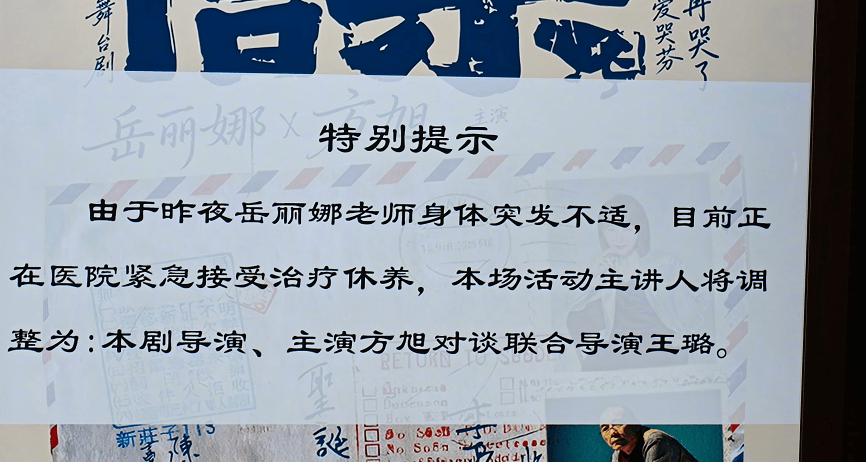 舞台剧
爱哭芬
再哭了
岳丽娜×方旭
主演
特别提示
由于昨夜岳丽娜老师身体突发不适，目前正
在医院紧急接受治疗休养，本场活动主讲人将调
整为：本剧导演、主演方旭对谈联合导演王璐。
RETURN TO
聖
誕
新莊